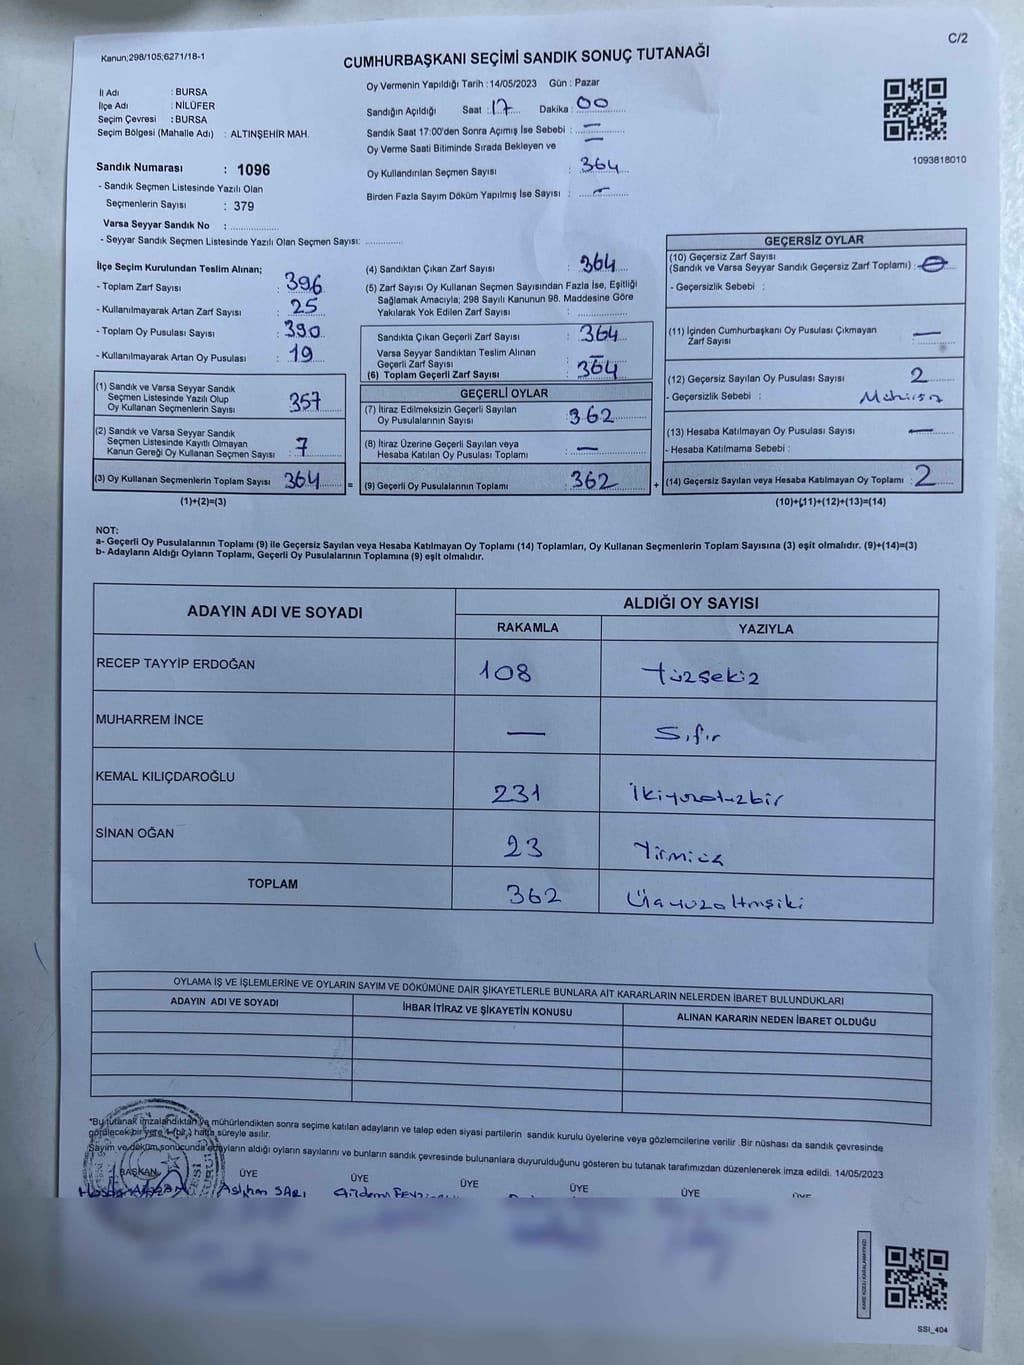 C/2
Kanun;298/105;6271/18-1
CUMHURBAŞKANI SEÇİMİ SANDIK SONUÇ TUTANAĞI
İl Adı : BURSA
İlçe Adı : NİLÜFER
Seçim Çevresi : BURSA
Seçim Bölgesi (Mahalle Adı) : ALTINŞEHİR MAH.
Oy Vermenin Yapıldığı Tarih : 14/05/2023 Gün : Pazar
Sandığın Açıldığı Saat : 17 Dakika : 00
Sandık Saat 17:00'den Sonra Açımış İse Sebebi : —
Oy Verme Saati Bitiminde Sırada Bekleyen ve —
Oy Kullandırılan Seçmen Sayısı : 364
Birden Fazla Sayım Döküm Yapılmış İse Sayısı : —
1093818010
Sandık Numarası : 1096
- Sandık Seçmen Listesinde Yazılı Olan
Seçmenlerin Sayısı : 379
Varsa Seyyar Sandık No :
- Seyyar Sandık Seçmen Listesinde Yazılı Olan Seçmen Sayısı:
İlçe Seçim Kurulundan Teslim Alınan;
- Toplam Zarf Sayısı : 396
- Kullanılmayarak Artan Zarf Sayısı : 25
- Toplam Oy Pusulası Sayısı : 390
- Kullanılmayarak Artan Oy Pusulası : 19
(1) Sandık ve Varsa Seyyar Sandık
Seçmen Listesinde Yazılı Olup
Oy Kullanan Seçmenlerin Sayısı : 357
(2) Sandık ve Varsa Seyyar Sandık
Seçmen Listesinde Kayıtlı Olmayan
Kanun Gereği Oy Kullanan Seçmen Sayısı : 7
(3) Oy Kullanan Seçmenlerin Toplam Sayısı : 364 =
(1)+(2)=(3)
(4) Sandıktan Çıkan Zarf Sayısı : 364
(5) Zarf Sayısı Oy Kullanan Seçmen Sayısından Fazla İse, Eşitliği
Sağlamak Amacıyla; 298 Sayılı Kanunun 98. Maddesine Göre
Yakılarak Yok Edilen Zarf Sayısı :
Sandıkta Çıkan Geçerli Zarf Sayısı : 364
Varsa Seyyar Sandıktan Teslim Alınan
Geçerli Zarf Sayısı : —
(6) Toplam Geçerli Zarf Sayısı : 364
GEÇERLİ OYLAR
(7) İtiraz Edilmeksizin Geçerli Sayılan
Oy Pusulalarının Sayısı : 362
(8) İtiraz Üzerine Geçerli Sayılan veya
Hesaba Katılan Oy Pusulası Toplamı : —
(9) Geçerli Oy Pusulalarının Toplamı : 362 +
GEÇERSİZ OYLAR
(10) Geçersiz Zarf Sayısı
(Sandık ve Varsa Seyyar Sandık Geçersiz Zarf Toplamı) :
- Geçersizlik Sebebi :
(11) İçinden Cumhurbaşkanı Oy Pusulası Çıkmayan
Zarf Sayısı : —
(12) Geçersiz Sayılan Oy Pusulası Sayısı : 2
- Geçersizlik Sebebi :
(13) Hesaba Katılmayan Oy Pusulası Sayısı : —
- Hesaba Katılmama Sebebi :
(14) Geçersiz Sayılan veya Hesaba Katılmayan Oy Toplamı : 2
(10)+(11)+(12)+(13)=(14)
NOT:
a- Geçerli Oy Pusulalarının Toplamı (9) ile Geçersiz Sayılan veya Hesaba Katılmayan Oy Toplamı (14) Toplamları, Oy Kullanan Seçmenlerin Toplam Sayısına (3) eşit olmalıdır. (9)+(14)=(3)
b- Adayların Aldığı Oyların Toplamı, Geçerli Oy Pusulalarının Toplamına (9) eşit olmalıdır.
ADAYIN ADI VE SOYADI ALDIĞI OY SAYISI
RAKAMLA YAZIYLA
RECEP TAYYİP ERDOĞAN 108 Yüzsekiz
MUHARREM İNCE — Sıfır
KEMAL KILIÇDAROĞLU 231 İkiyüzotuzbir
SİNAN OĞAN 23 Yirmiüç
TOPLAM 362 Üçyüzaltmışiki
OYLAMA İŞ VE İŞLEMLERİNE VE OYLARIN SAYIM VE DÖKÜMÜNE DAİR ŞİKAYETLERLE BUNLARA AİT KARARLARIN NELERDEN İBARET BULUNDUKLARI
ADAYIN ADI VE SOYADI İHBAR İTİRAZ VE ŞİKAYETİN KONUSU ALINAN KARARIN NEDEN İBARET OLDUĞU
*Bu tutanak imzalandıktan ve mühürlendikten sonra seçime katılan adayların ve talep eden siyasi partilerin sandık kurulu üyelerine veya gözlemcilerine verilir .Bir nüshası da sandık çevresinde
görülecek bir yere 1 (bir) hafta süreyle asılır.
Sayım ve döküm sonucunda adayların aldığı oyların sayılarını ve bunların sandık çevresinde bulunanlara duyurulduğunu gösteren bu tutanak tarafımızdan düzenlenerek imza edildi. 14/05/2023
BAŞKAN ÜYE ÜYE ÜYE ÜYE ÜYE ÜYE
Aslıhan SARI
KARE KODU KARALAMAYINIZ!
SSI_404